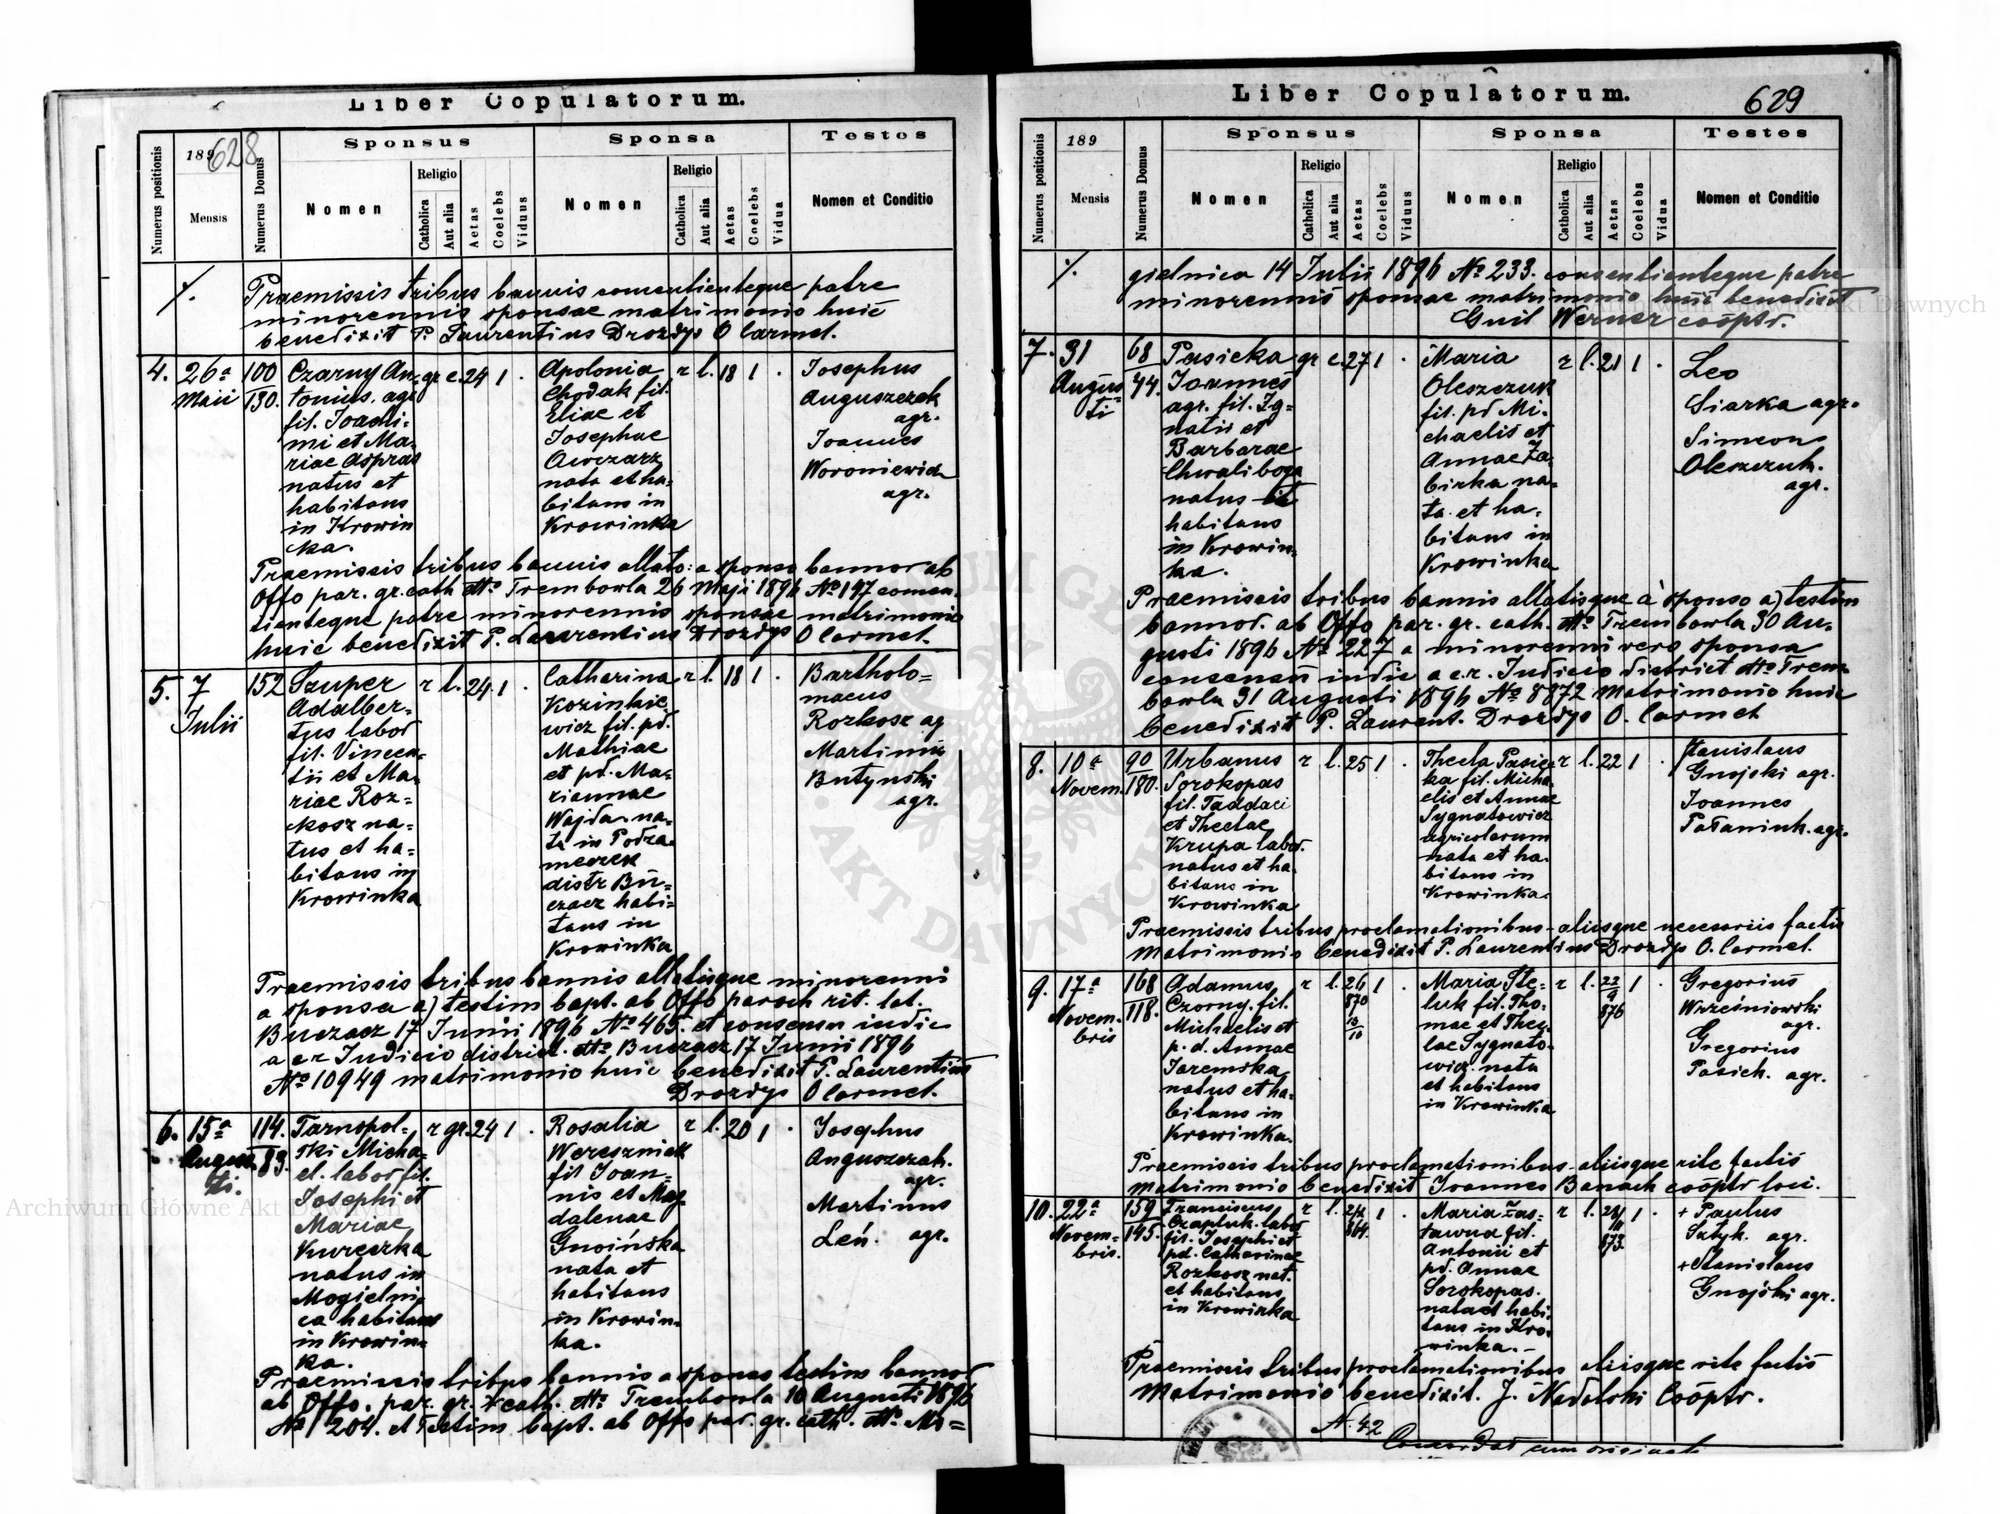 Liber Copulatorum.
628
Numerus positionis
189
Mensis
Numerus Domus
Sponsus
Nomen
Religio
Catholica
Aut alia
Aetas
Coelebs
Viduus
Sponsa
Nomen
Religio
Catholica
Aut alia
Aetas
Coelebs
Vidua
Testes
Nomen et Conditio
./.
Praemissis tribus bannis consentienteque patre
minorennis sponsae matrimonio huic
benedixit P. Laurentius Drozdys O Carmel.
4. 26a Maii
100
130.
Czarny An-
tonius. agr
fil. Joachi-
mi et Ma-
riae Aspras
natus et
habitans
in Krowin
ka.
gr c. 24 1 .
Apolonia
Chodak fil.
Eliae et
Josephae
Owczarz
nata et ha-
bitans in
Krowinka
r l. 18 1 .
Josephus
Auguszczak
agr.
Joannes
Woroniewicz
agr.
Praemissis tribus bannis allato: a sponso bannor ab
Offo par. gr. cath. Trembowla 26 Maji 1896 No 147 consen-
tienteque patre minorennis sponsae matrimonio
huic benedixit P. Laurentius Drozdys O Carmel.
5. 7 Julii
152
Szuper
Adalber-
tus labor
fil. Vincen-
tii et Ma-
riae Roz-
kosz na-
tus et ha-
bitans in
Krowinka
r l. 24 1 .
Catherina
Kozinkie
wicz fil. pd.
Mathiae
et pd. Ma-
riannae
Wajda. na-
ta in Podza
meczek
distr Bu-
czacz habi-
tans in
Krowinka
r l. 18 1 .
Bartholo-
maeus
Rozkosz ag
Martinus
Butynski
agr.
Praemissis tribus bannis allatisque minorenni
a sponsa a) testim bapt. ab Offo paroch rit. lat.
Buczacz 17 Junii 1896 No 465. et consensu iudic
a c r Judicio district. Buczacz 17 Junii 1896
No 10949 matrimonio huic benedixit P. Laurentius
Drozdys O Carmel.
6. 15a Augus-
ti.
114.
83.
Tarnopol-
ski Micha-
el. labor fil.
Josephi et
Mariae
Kureczka
natus in
Mogielni-
ca habitans
in Krowin-
ka.
r gr. 24 1 .
Rosalia
Wereszniak
fil Joan-
nis et Mag
dalenae
Gnoińska
nata et
habitans
in Krowin-
ka.
r l. 20 1 .
Josephus
Auguszczak.
agr.
Martinus
Leń. agr.
Praemissis tribus bannis a sponso testim bannor
ab Offo. par. gr. cath. Trembowla 10 Augusti 1896
No 204. et testim bapt. ab Offo par. gr. cath. Mo-
Liber Copulatorum.
629
Numerus positionis
189
Mensis
Numerus Domus
Sponsus
Nomen
Religio
Catholica
Aut alia
Aetas
Coelebs
Viduus
Sponsa
Nomen
Religio
Catholica
Aut alia
Aetas
Coelebs
Vidua
Testes
Nomen et Conditio
./.
gielnica 14 Julii 1896 No 233. consentienteque patre
minorennis sponsae matrimonio huic benedixit
Guil Werner coóptr.
7. 31 Augus-
ti
68
44.
Pasieka
Joannes
agr. fil. Ig-
natii et
Barbarae
Chwaliboga
natus et
habitans
in Krowin-
ka.
gr c. 27 1 .
Maria
Oleszczuk
fil. pd Mi-
chaelis et
Annae Za-
birka na-
ta et ha-
bitans in
Krowinka
r l. 21 1 .
Leo
Siarka agr.
Simeon
Oleszczuk.
agr.
Praemissis tribus bannis allatisque à sponso a) testim
bannor. ab Offo par. gr. cath. Trembowla 30 Au-
gusti 1896 No 227 a minorenni vero sponsa
consensu iudic a c r. Judicio district Trem-
bowla 31 Augusti 1896 No 8872 matrimonio huic
benedixit P. Laurent. Drozdys O. Carmel
8. 10a Novem.
90
180.
Urbanus
Sorokopas
fil. Taddaei
et Theclae
Krupa labor.
natus et ha-
bitans in
Krowinka
r l. 25 1 .
Thecla Pasie-
ka fil. Micha-
elis et Annae
Sygnatowicz
agricolarum
nata et ha-
bitans in
Krowinka.
r l. 22 1 .
Stanislaus
Gnojski agr.
Joannes
Pataniuk. agr.
Praemissis tribus proclamationibus aliisque necessariis factis
Matrimonio benedixit P. Laurentius Drozdys O. Carmel.
9. 17a Novem-
bris
168
118.
Adamus
Czorny. fil.
Michaelis et
p. d. Annae
Jaremska
natus et ha-
bitans in
Krowinka.
r l. 26 1 .
870
10
Maria Ste-
luk fil. Tho-
mae et Thec-
lae Sygnato-
wicz. nata
et habitans
in Krowinka
r l. 22 1 .
9
876
Gregorius
Wrześniowski
agr.
Gregorius
Pasiek. agr.
Praemissis tribus proclamationibus aliisque rite factis
Matrimonio benedixit Joannes Banach coóptr loci.
10. 22a Novem-
bris.
159
145.
Franciscus
Czapluk. labor
fil. Josephi et
pd. Catharinae
Rozkosz nat.
et habitans
in Krowinka
r l. 1 .
Maria Zas-
tawna fil.
Antonii et
pd. Annae
Sorokopas.
nata et habi-
tans in Kro-
winka.
r l. 1 .
11
873.
+ Paulus
Sztyk. agr.
+ Stanislaus
Gnojski agr.
Praemissis tribus proclamationibus aliisque rite factis
Matrimonio benedixit. J. Nadolski Coóptr.
N. 42
Concordat cum originali
Archiwum Główne Akt Dawnych
Archiwum Główne Akt Dawnych